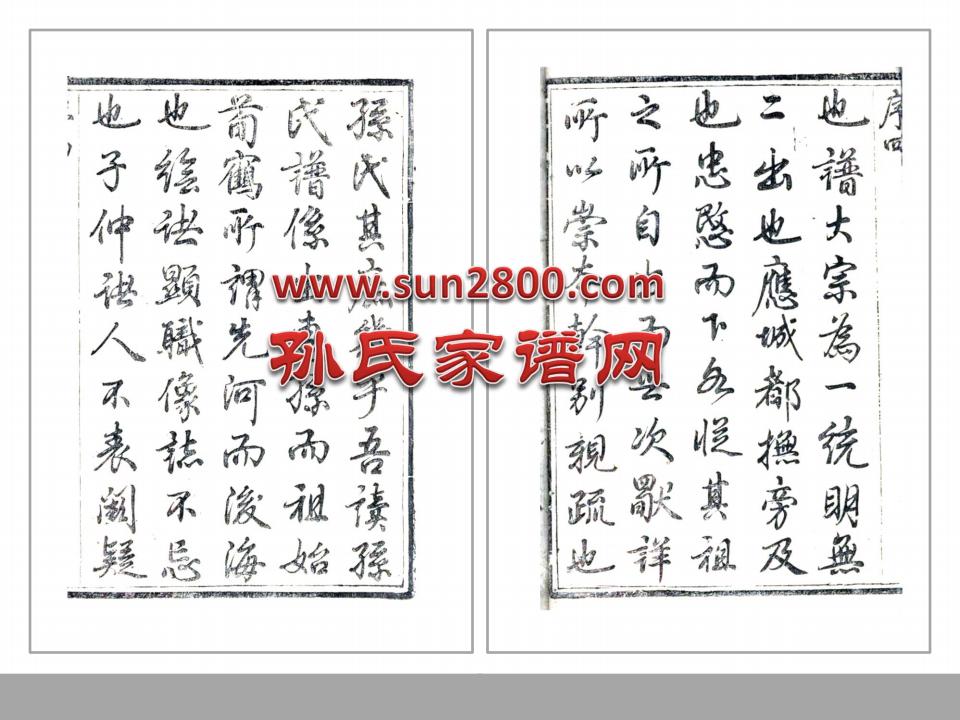 序四
也譜大宗為一統明無
二出也應城都撫旁及
也忠愍而下各從其祖
之所自出而世次詳
所以崇本幹別親疏也
孫氏其庶幾乎吾讀孫
氏譜係孫而祖始
莆鶴所謂先河而後海
也繪誥顯職像誌不忘
也子仲誥人不表闕疑
www.sun2800.com
孙氏家谱网